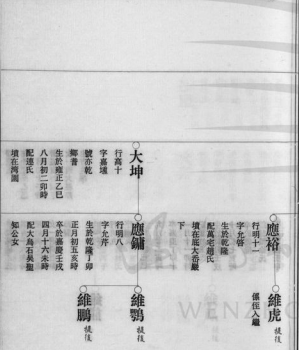 應裕
行明十
字允啓
生於乾隆
配萬宅趙氏
墳在底大岙嚴
下
維虎
係侄入繼
大坤
行高十
字嘉
號亦乾
鄉耆
生於雍正乙巳
八月初二卯時
配連氏
墳在灣園
應鏽
行明八
字允芹
生於乾隆丁卯
正月初五亥時
卒於嘉慶壬戌
四月十六未時
配大烏石吳聖
知公女
維鶚
模後
維鵬
模後
WENZ